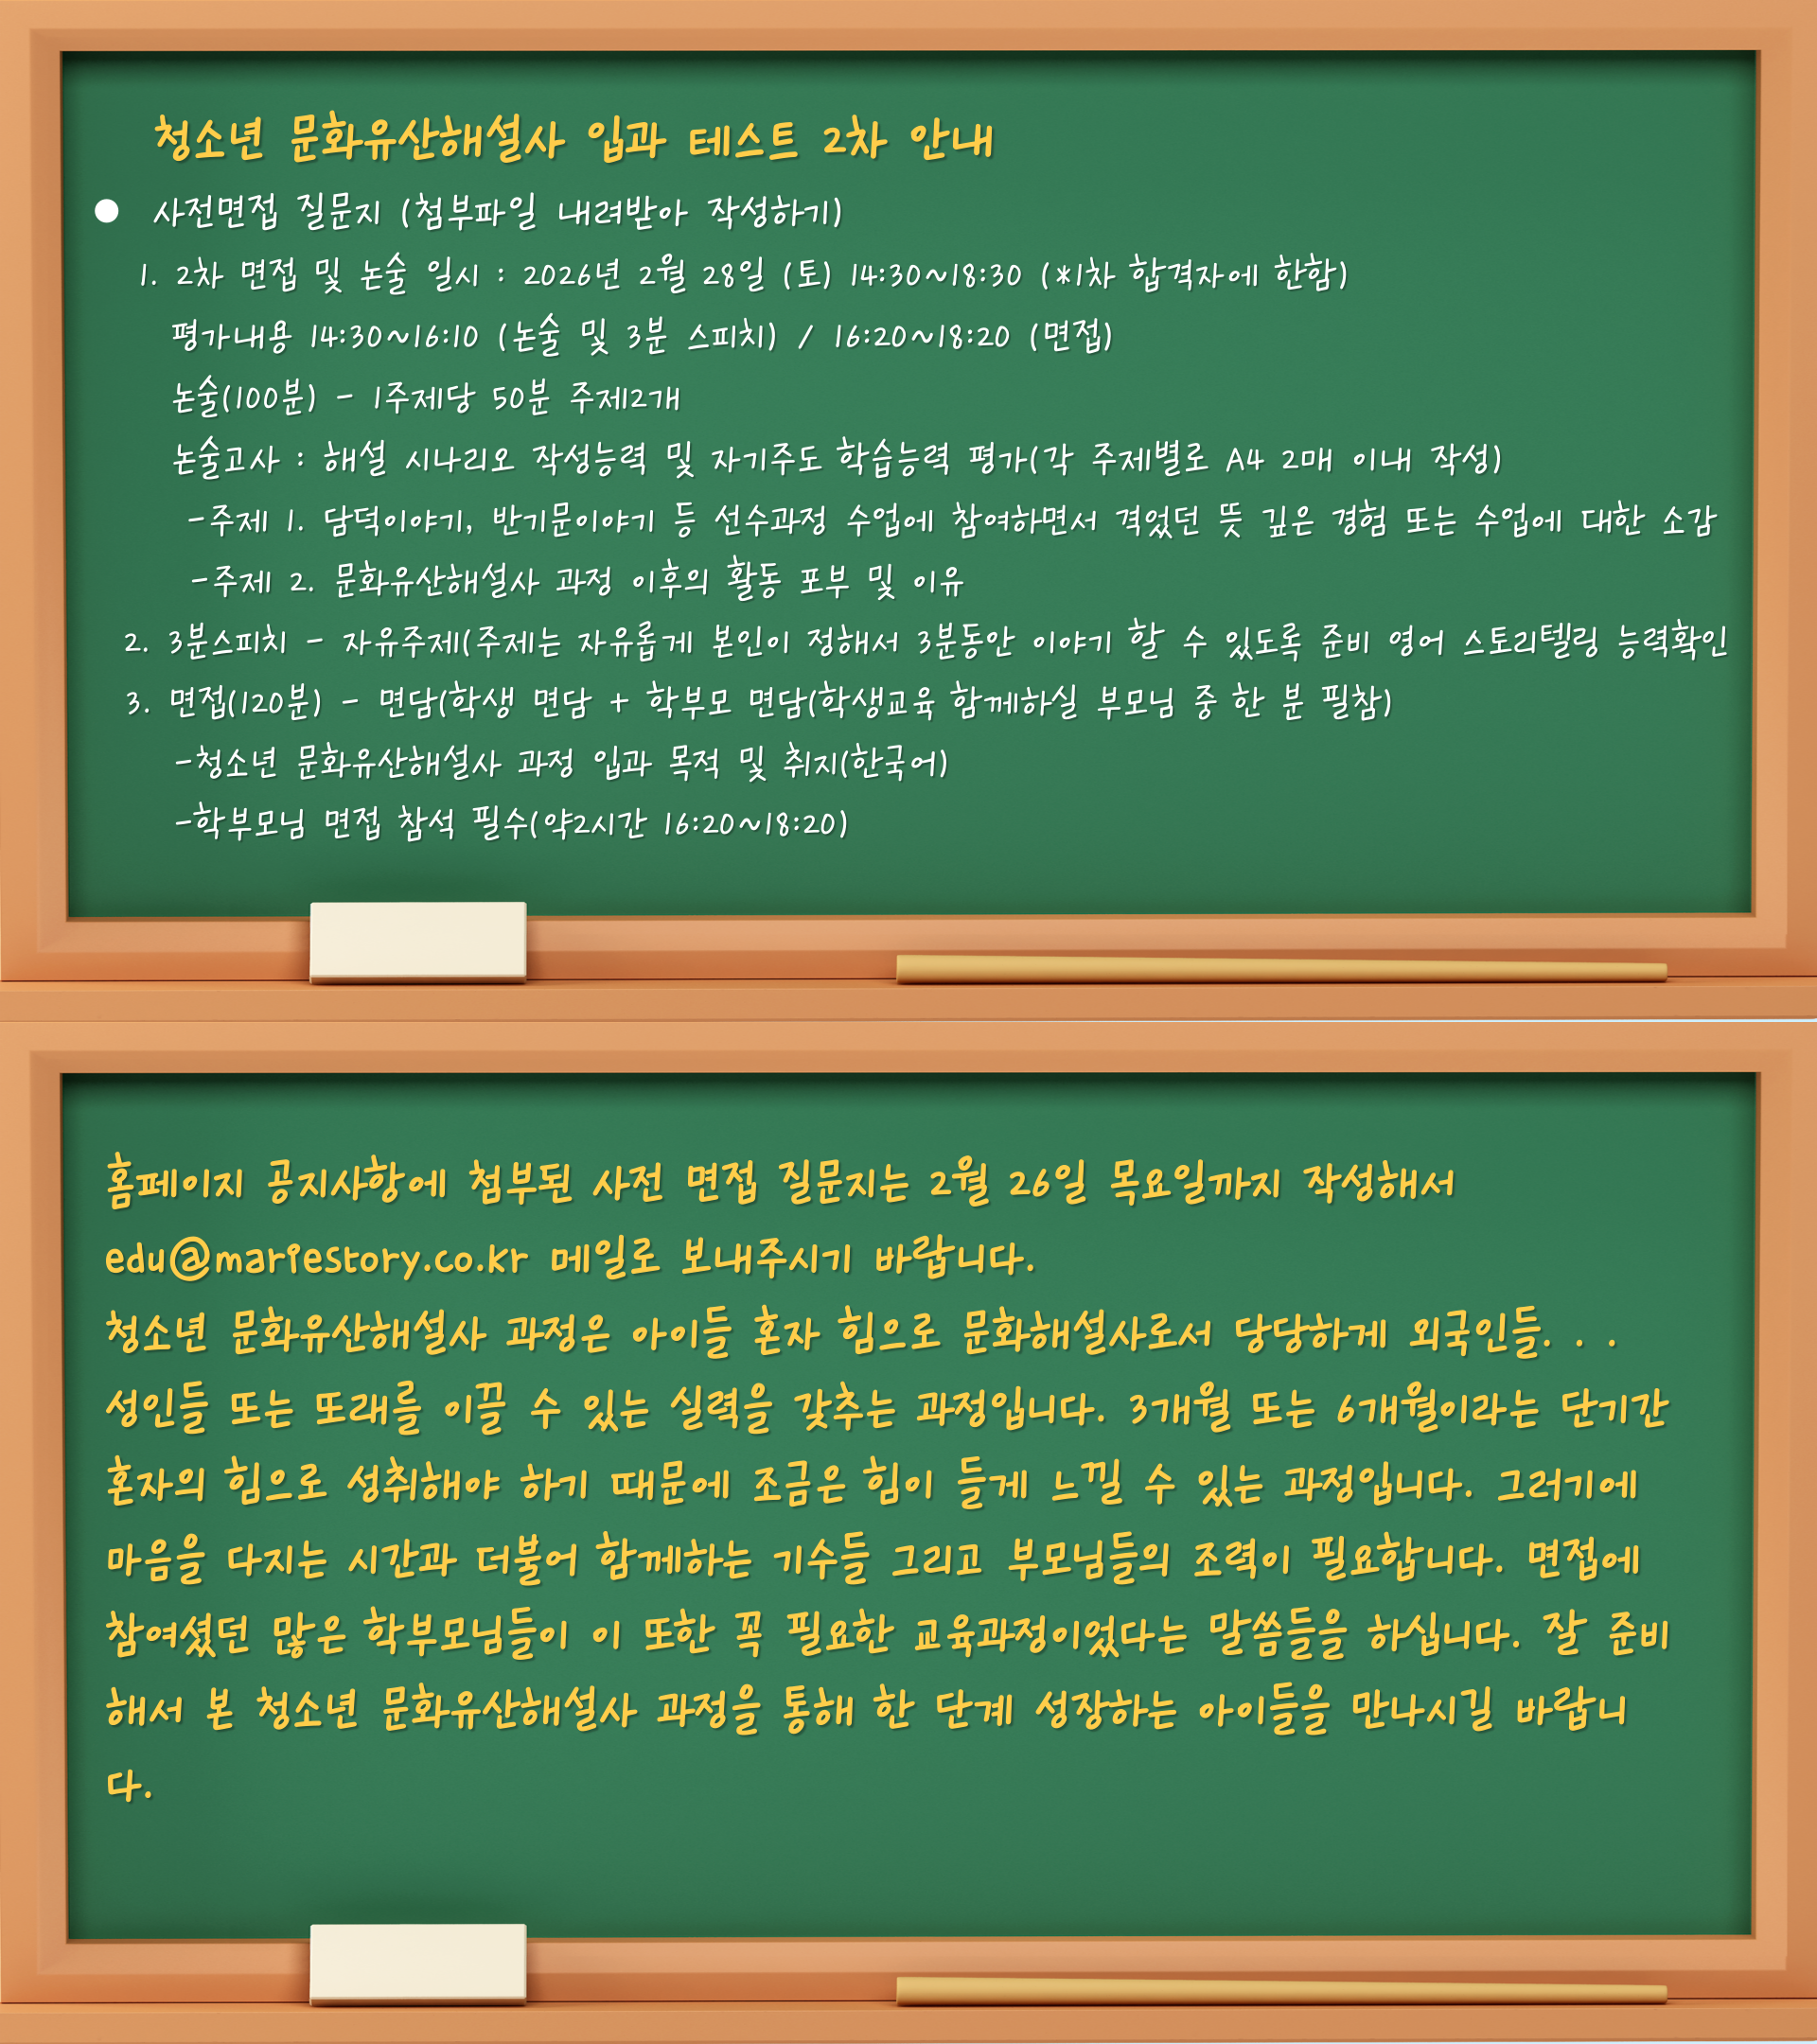 청소년 문화유산해설사 입과 테스트 2차 안내
● 사전면접 질문지 (첨부파일 내려받아 작성하기)
1. 2차 면접 및 논술 일시 : 2026년 2월 28일 (토) 14:30~18:30 (*1차 합격자에 한함)
평가내용 14:30~16:10 (논술 및 3분 스피치) / 16:20~18:20 (면접)
논술(100분) - 1주제당 50분 주제2개
논술고사 : 해설 시나리오 작성능력 및 자기주도 학습능력 평가(각 주제별로 A4 2매 이내 작성)
-주제 1. 담덕이야기, 반기문이야기 등 선수과정 수업에 참여하면서 격었던 뜻 깊은 경험 또는 수업에 대한 소감
-주제 2. 문화유산해설사 과정 이후의 활동 포부 및 이유
2. 3분스피치 - 자유주제(주제는 자유롭게 본인이 정해서 3분동안 이야기 할 수 있도록 준비 영어 스토리텔링 능력확인
3. 면접(120분) - 면담(학생 면담 + 학부모 면담(학생교육 함께하실 부모님 중 한 분 필참)
-청소년 문화유산해설사 과정 입과 목적 및 취지(한국어)
-학부모님 면접 참석 필수(약2시간 16:20~18:20)
홈페이지 공지사항에 첨부된 사전 면접 질문지는 2월 26일 목요일까지 작성해서
edu@mariestory.co.kr 메일로 보내주시기 바랍니다.
청소년 문화유산해설사 과정은 아이들 혼자 힘으로 문화해설사로서 당당하게 외국인들. . .
성인들 또는 또래를 이끌 수 있는 실력을 갖추는 과정입니다. 3개월 또는 6개월이라는 단기간
혼자의 힘으로 성취해야 하기 때문에 조금은 힘이 들게 느낄 수 있는 과정입니다. 그러기에
마음을 다지는 시간과 더불어 함께하는 기수들 그리고 부모님들의 조력이 필요합니다. 면접에
참여셨던 많은 학부모님들이 이 또한 꼭 필요한 교육과정이었다는 말씀들을 하십니다. 잘 준비
해서 본 청소년 문화유산해설사 과정을 통해 한 단계 성장하는 아이들을 만나시길 바랍니
다.